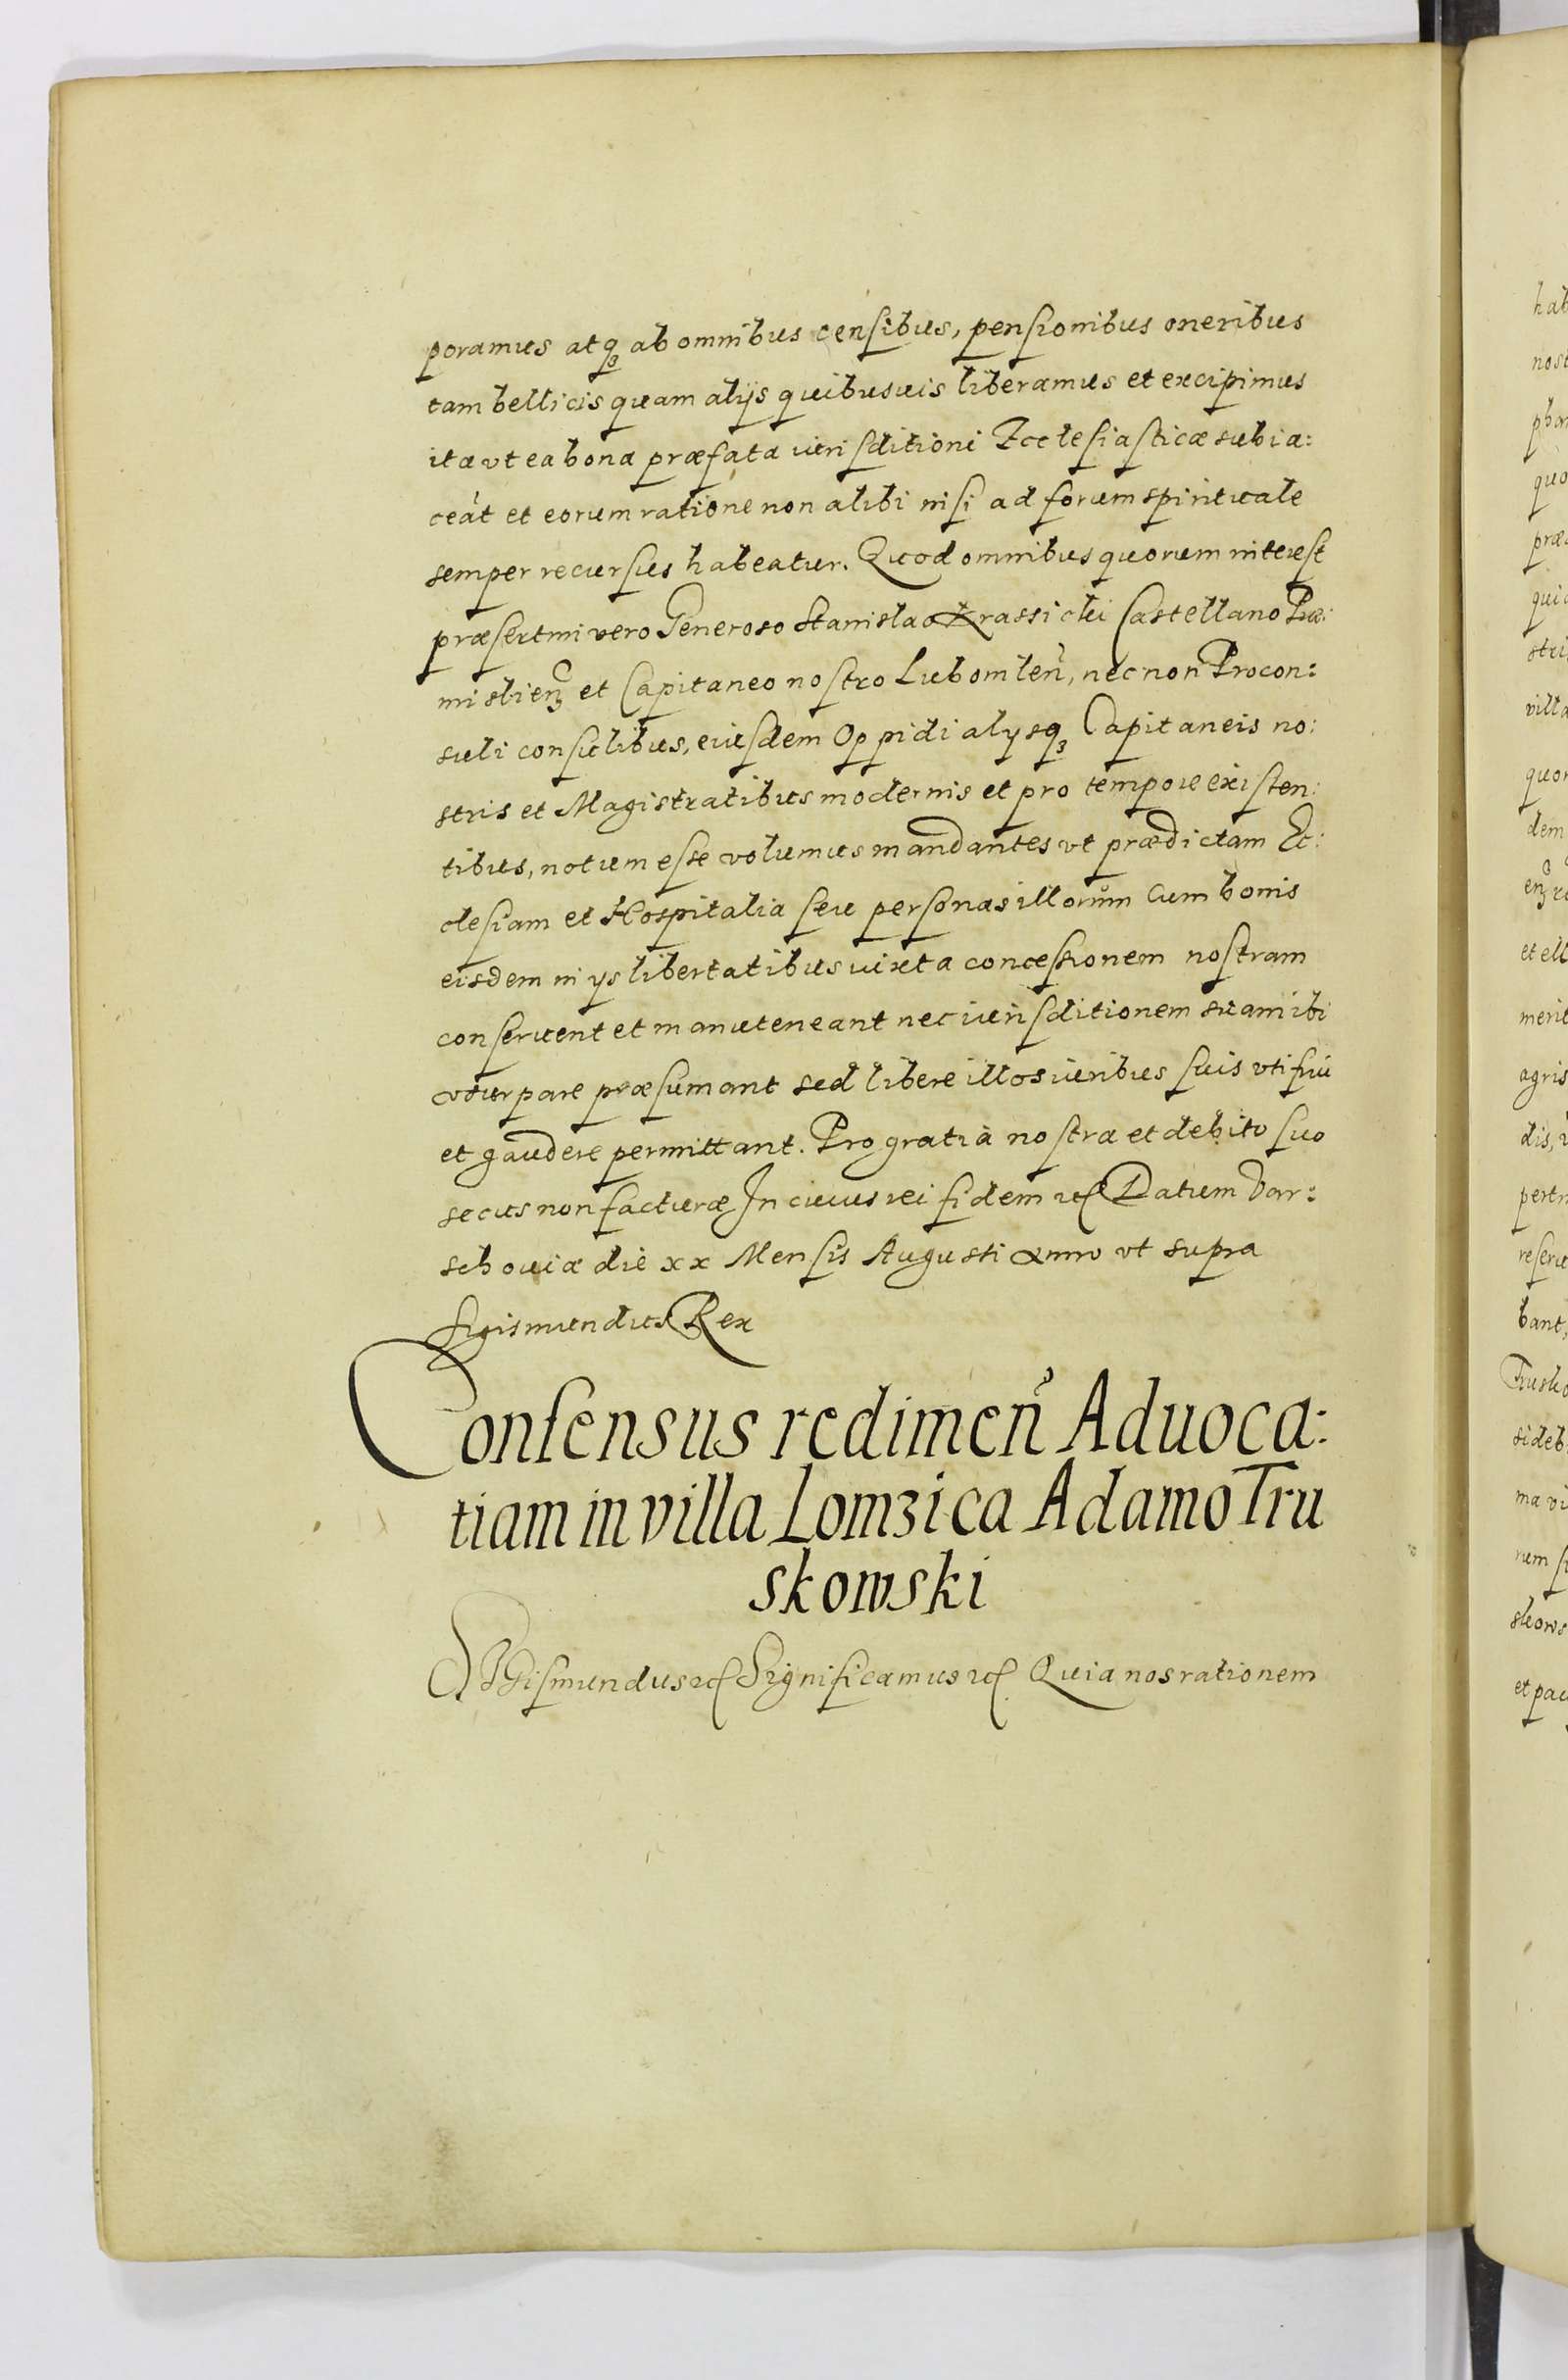 poramus atqꝫ ab omnibus censibus, pensionibus oneribus
tam bellicis quam alijs quibusuis liberamus et excipimus
ita vt ea bona præfata iurisditioni Ecclesiasticæ subia:
ceāt et eorum ratione non alibi nisi ad forum spirituale
semper recursus habeatur. Quod omnibus quorum interest
præsertim vero Generoso Stanislao Krassicki Castellano Præ:
misliēꝫ et Capitaneo nostro Lubomleñ, nec non Procon:
suli consulibus, eiusdem Oppidi alysqꝫ Capitaneis no:
stris et Magistratibus modernis et pro tempore existen:
tibus, notum esse volumus mandantes vt prædictam Ec:
clesiam et Hospitalia seu personas illorum cum bonis
eisdem in ys libertatibus iuxta concessionem nostram
conseruent et manuteneant nec iurisditionem suam ibi
vsurpare præsumant sed libere illos iuribus suis vti frui
et gaudere permittant. Pro gratia nostra et debito suo
secus non facturæ In cuius rei fidem etc Datum Var:
schouiæ die xx Mensis Augusti anno vt supra
Sigismundus Rex
Consensus redimeñ Aduoca:
tiam in villa Lomzica Adamo Tru
skowski
SIGismundus etc Significamus etc Quia nos rationem
hab
nost
phor
quo
præ
qui
stri
villa
quor
dem
et ell
merit
agris
dis,
pert
reseru
bant,
Trusko
sideb
ma vi
rum
skows
et pac